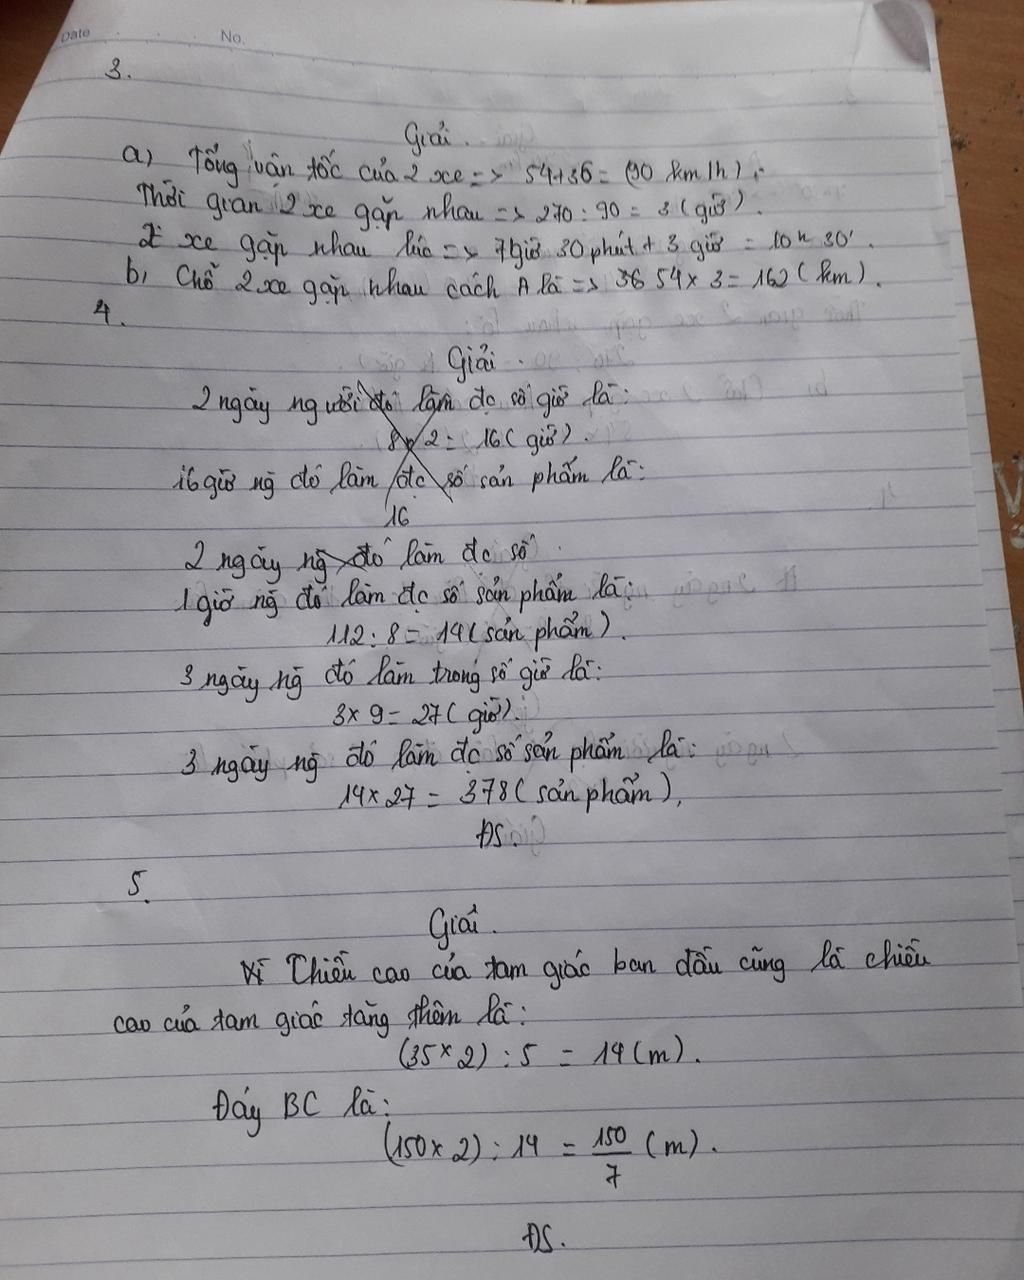 Date No.
3.
Giải.
a) Tổng vận tốc của 2 xe => 54+36= (90 km/h).
Thời gian 2 xe gặp nhau => 270:90= 3 (giờ).
2 xe gặp nhau lúc => 7giờ 30 phút + 3 giờ = 10h 30'.
b, Chỗ 2 xe gặp nhau cách A là => 36 54 x 3 = 162 (km).
4.
Giải.
2 ngày người đó làm đc số giờ là:
8 x 2 = 16 (giờ).
16 giờ ng đó làm đc số sản phẩm là:
16
2 ngày ng đó làm đc số
1 giờ ng đó làm đc số sản phẩm là:
112 : 8 = 14 (sản phẩm).
3 ngày ng đó làm trong số giờ là:
3 x 9 = 27 (giờ).
3 ngày ng đó làm đc số sản phẩm là:
14 x 27 = 378 (sản phẩm),
ĐS.
5.
Giải.
Vì Chiều cao của tam giác ban đầu cũng là chiều
cao của tam giác tăng thêm là:
(35 x 2) : 5 = 14 (m).
Đáy BC là:
(150 x 2) : 14 = 150/7 (m).
ĐS.